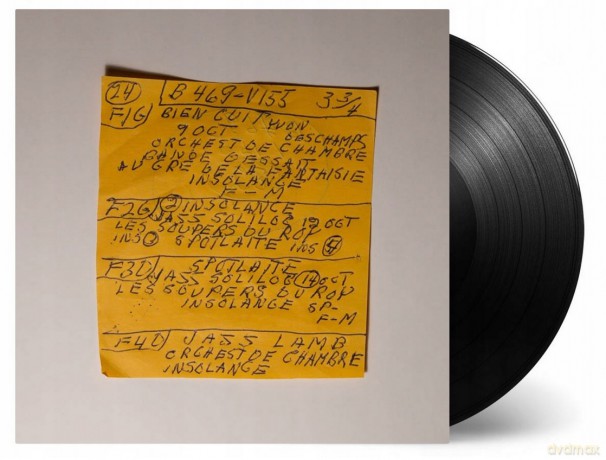 24 B 469-V155 3 3/4
F1G BIEN CUIT WON
9 OCT DESCHAMPS
ORCHEST DE CHAMBRE
BANDE D ESSAIT
AU GRE DE LA FANTAISIE
INSOLANGE
F-M
F2G INSOLANCE
JASS SOLILOC 12 OCT
LES SOUPERS DU ROY
INS SPOTLAITE INS
F3D SPOTLAITE
JASS SOLILOC 14 OCT
LES SOUPERS DU ROY
INSOLANGE SP-
F-M
F4D JASS LAMB
ORCHEST DE CHAMBRE
INSOLANGE
dvdmax